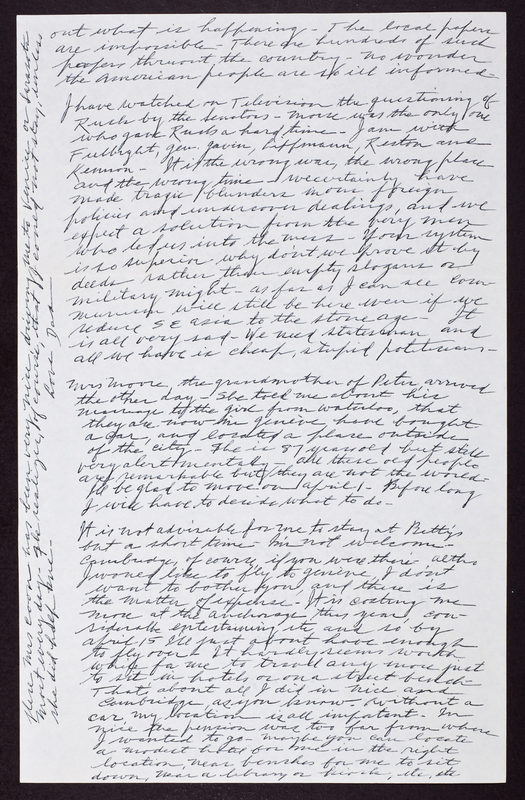 out what is happening - The local papers
are impossible - There are hundreds of such
papers thruout the country - no wonder
the American people are so ill informed -
I have watched on Television the questioning of
Rusk by the Senators - Morse was the only one
who gave Rusk a hard time - I am with
Fulbright, Gen. Gavin, Lippmann, Reston and
Kennan - It is the wrong war, the wrong place
and the wrong time - We certainly have
made tragic blunders in our foreign
policies and undercover dealings, and we
expect a solution from the very men
who led us into the mess - If our system
is so superior why don't we prove it by
deeds rather than empty slogans or
military might - as far as I can see Com
munism will still be here even if we
reduce S E Asia to the stone age - It
is all very sad - We need statesman and
all we have is cheap, stupid politicians -
Mrs Moore, the grandmother of Peter, arrived
the other day - She told me about his
marriage to the girl from Waterloo, that
they are now in Geneve, have bought
a car, and located a place outside
of the city - She is 87 years old but still
very alert mentally - All these old people
are remarkable but they are not the world -
I'll be glad to move on April 1 - Before long
I will have to decide what to do -
It is not advisable for me to stay at Betty's
but a short time - I'm not welcome -
Cambridge, of course, if you were there altho
I would like to fly to Geneve, I don't
want to bother you, and there is
the matter of expense - It is costing me
more at the anchorage this year, con
siderable entertaining etc and so by
April 15 I'll just about have enough
to fly over - It hardly seems worth
while for me to travel any more just
to sit in hotels or on a street bench -
That's about all I did in Nice and
Cambridge, as you know - Without a
car, my location is all important - In
Nice the pension was too far from where
I wanted to go - maybe you can locate
a modest hotel for me in the right
location, near benches for me to sit
down, near a library or kiosk, etc, etc
Mrs Coon has been very nice driving me to Venice or Sarasota
most every day - She realizes, of course, that I could not stay, unless
she did help me -
Love Dad -